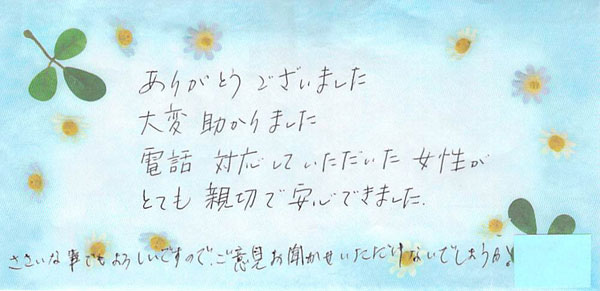 ありがとうございました
大変 助かりました
電話 対応していただいた 女性が
とても 親切で安心できました.
ささいな事でもよろしいですので、ご意見お聞かせいただけないでしょうか!